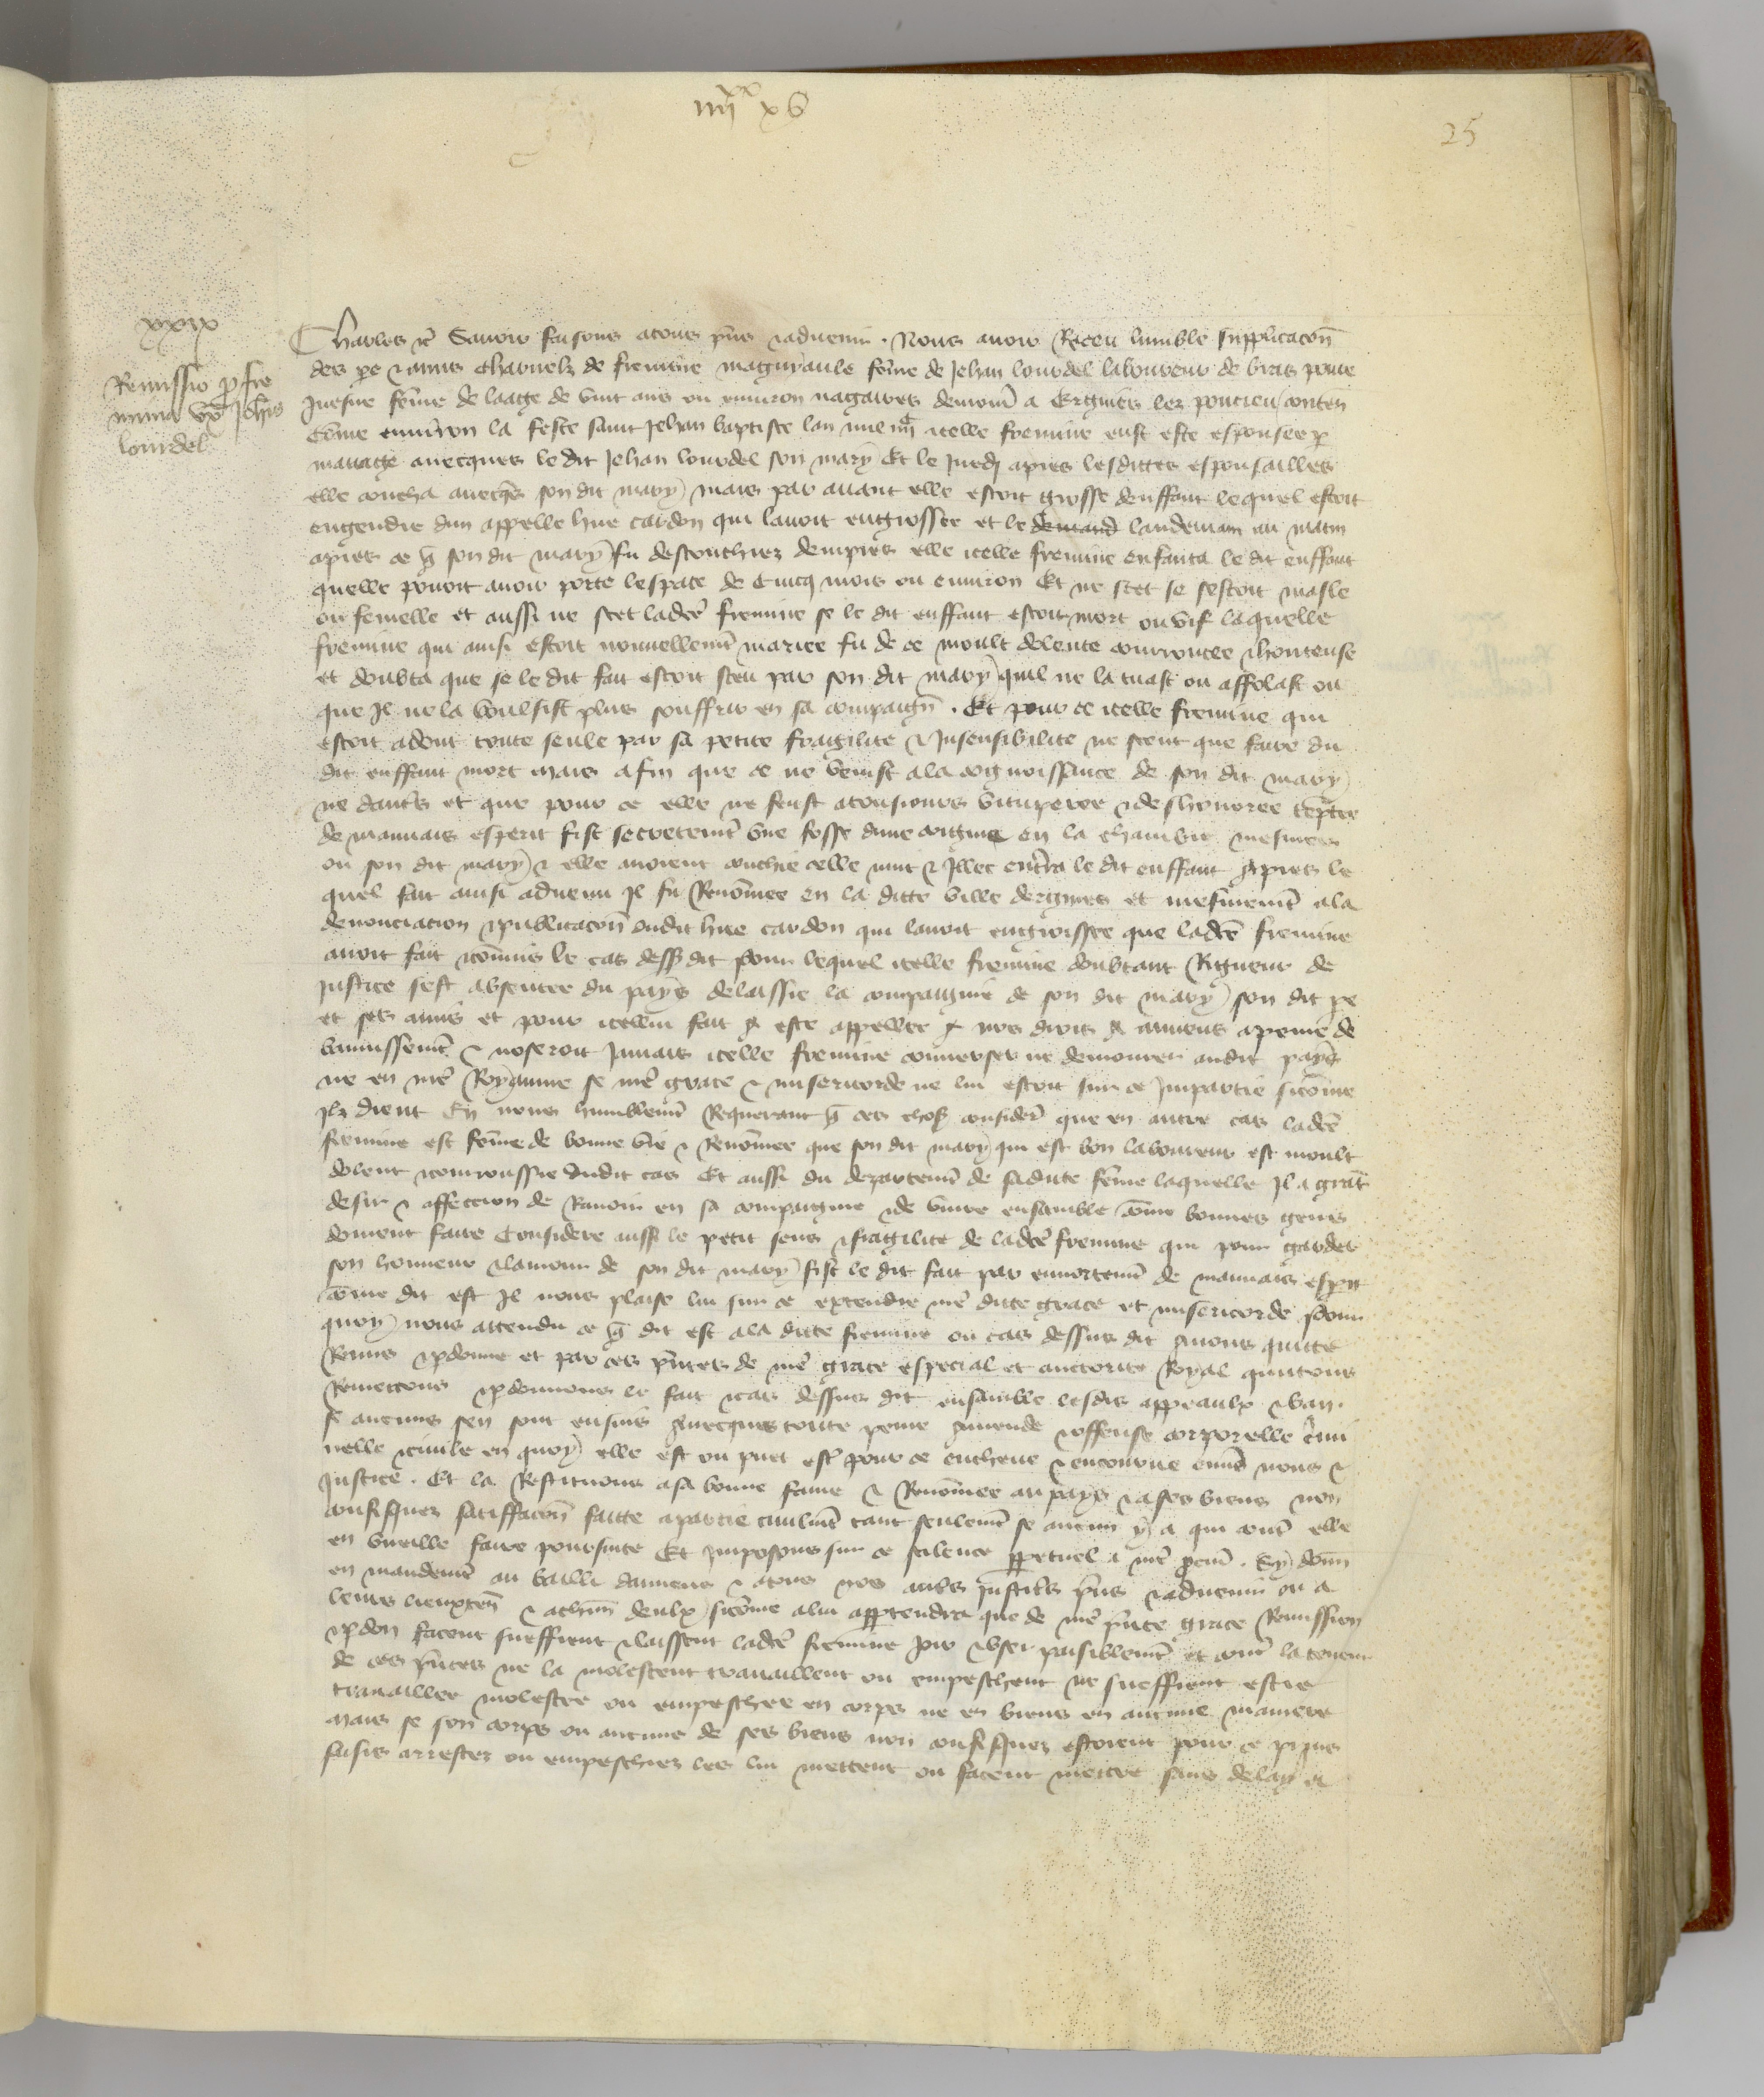 iiii xx xv
25
xxix
Remissio p fre
mina ux Johis
lourdel
Charles rc Savoir faisons atous pns & advenir . Nous avoir Receu lumble supplicacon
des pe & amis charnelz de fremine maguiraule feme de Jehan lourdel laboureur de bras povre
Juefne feme de laage de vint ans ou environ nagaires demour a Ergnies lez poutieu conten
Come environ la feste saint Jehan baptiste lan mil iiii icelle fremine eust este espousee p
mariage avecques le dit Jehan lourdel son mary Et le Juedj apres lesdittes espousailles
elle coucha avecqs son dit mary mais par avant elle estoit grosse denffant lequel estoit
engendre dun appelle hue cardon qui lavoit engrossee et le demand landemain au matin
apres ce q son dit mary fu descouchiez dempres elle icelle fremine enfanta le dit enffant
quelle povoit avoir porte lespace de Cincq mois ou environ Et ne scet se sestoit masle
ou femelle et aussi ne scet ladce fremine se le dit enffant estoit mort ou vif laquelle
fremine qui ainsi estoit nouvellemt mariee fu de ce moult dolente courroucee & honteuse
et doubta que se le dit fait estoit sceu par son dit mary quil ne la tuast ou affolast ou
que Il ne la voulsist plus souffrir en sa compaign . Et pour ce icelle fremine qui
estoit adont toute seule par sa petite fragilite & Insensibilite ne scent que faire du
dit enffant mort mais afin que ce ne venist ala cognoissance de son dit mary
ne dautrs et que pour ce elle ne feust atousiours vituperee & deshonoree temptee
de mauvais esperit fist secretemt une fosse dune coignie en la chambre mesmes
ou son dit mary & elle avoient couchie celle nuit & Illec enterra le dit enffant Apres le
quel fait ainsi advenu Il fu Renommee en la ditte ville dergnies et mesmemt ala
denonciacion & publicacon dudit hue cardon qui lavoit engrossee que ladce fremine
avoit fait & comis le cas dessusdit pour lequel icelle fremine doubtant Rigueur de
Justice sest absentee du pays delaissie la compaignie de son dit mary son dit pe
et ses amis et pour icellui fait a este appellee a nos drois a amiens apeine de
banissemt & noseroit Jamais icelle fremine converser ne demourer audit pays
ne en nre Royaume se nre grace & misericorde ne lui estoit sur ce Impartie sicome
Ilz dient En nous humblemt Requerant q ces choses considere que en autre cas ladce
fremine est feme de bonne vie & Renomee que son dit mary qui est bon laboureur est moult
dolent & courroussie dudit cas Et aussi du departemt de sadicte feme laquelle Il a grant
desir & affeccion de Ravoir en sa compaignie & de vivre ensamble come bonnes gens
doivent faire Considere aussi le petit sens & fragilite de ladce fremine qui pour garder
son honneur & lamour de son dit mary fist le dit fait par ennortemt de mauvais esprit
come dit est Il nous plaise lui sur ce extendre nre dicte grace et misericorde pour
quoy nous attendu ce q dit est ala dicte fremine ou cas dessus dit Avons quitte
Remis & pdonne et par ces pntes de nre grace especial et auctorite Royal quittons
Remettons & pdonnons le fait & cas dessus dit ensamble lesdis appeaulx & ban
se aucuns sen sont ensuis Avecques toute peine Amende & offense corporelle crimi
nelle & civile en quoy elle est ou puet estre pour ce encheue & encourue envs nous &
Justice . Et la Restituons asa bonne fame & Renomee au pays & ases biens non
confisquez satiffacon faitte apartie civilmt tant seulemt se aucun y a qui contre elle
en vueille faire poursuite Et Imposons sur ce silence ppetuel a nre procur . Sy donn
en mandemt au bailli damiens & atous nos autrs Justicrs pns & advenir ou a
leurs lieuxten & achun deulx sicome alui appartendra que de nre pnte grace Remission
& pdon facent sueffrent & laissent ladce fremine Joir & user paisiblemt et contr la teneur
de ces pntes ne la molestent travaillent ou empeschent ne sueffrent estre
travaillee molestee ou empeschee en corps ne en biens en aucune maniere
Mais se son corps ou aucuns de ses biens non confisquez estoient pour ce prins
saisis arrestez ou empeschiez les lui mettent ou facent mettre sans delay a